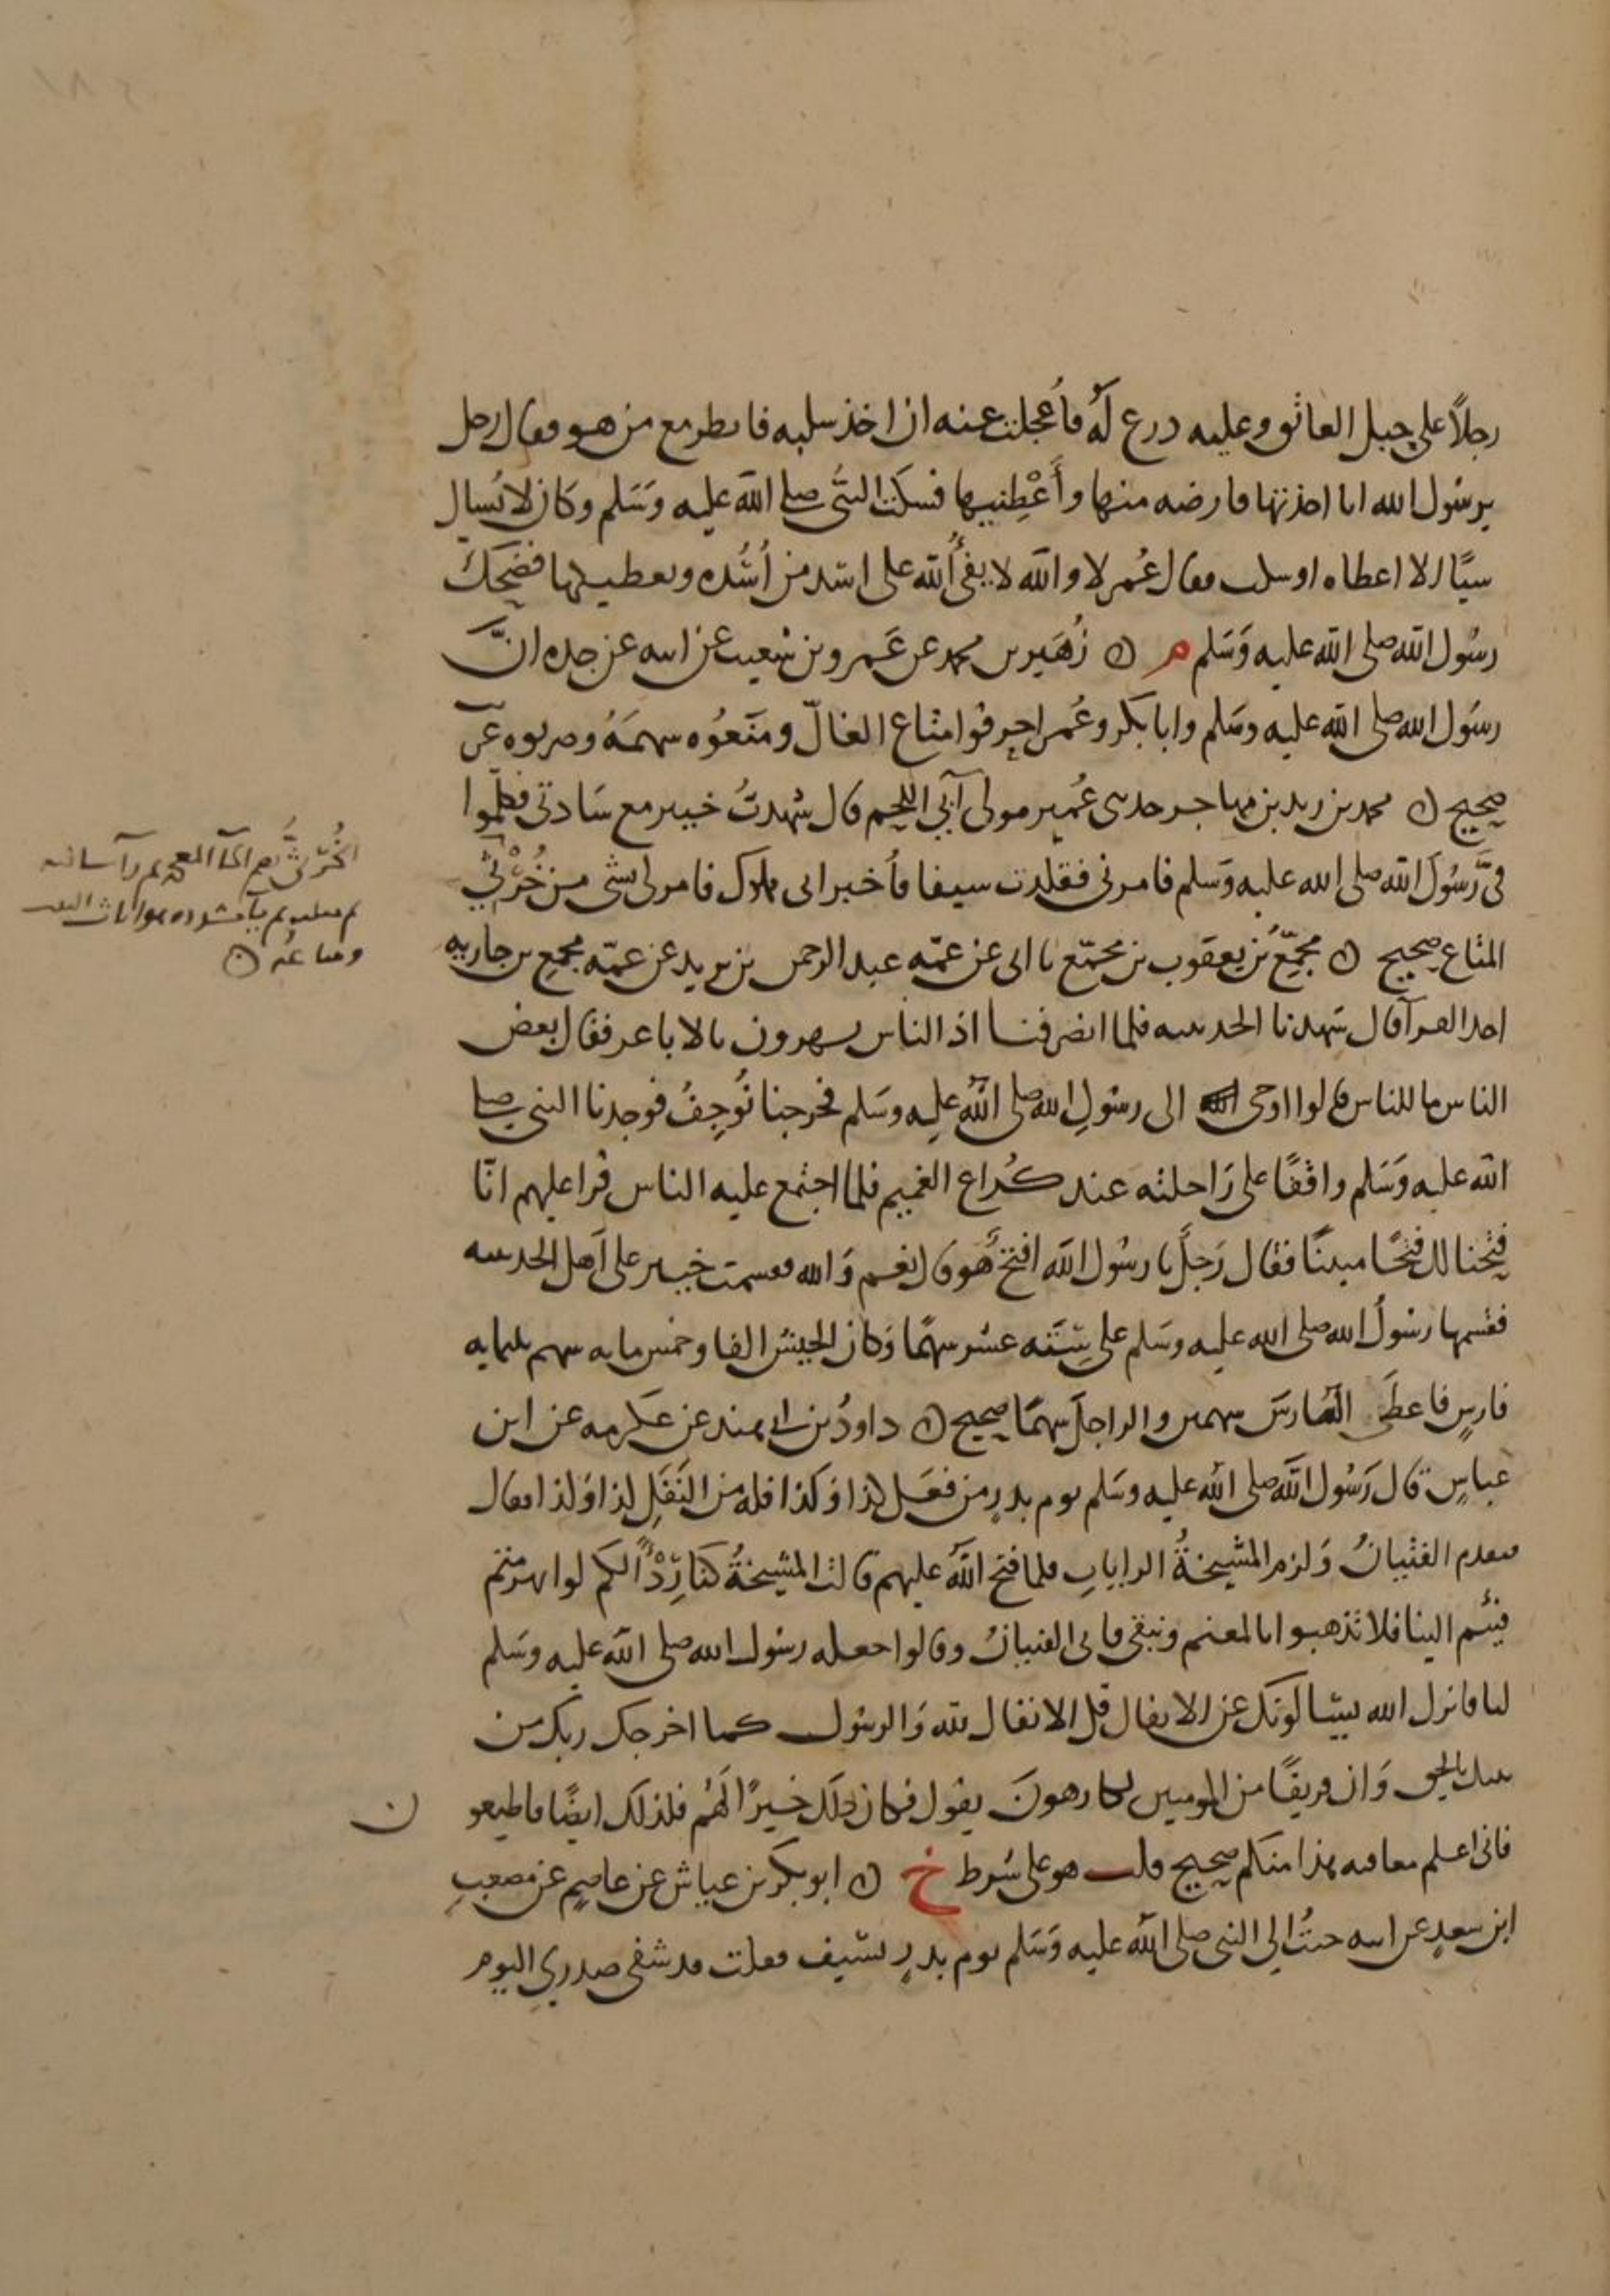 رجلاً على جبل العاتق وعليه درع له فأعجلت عنه ان اخذ سلبه فانظر مع من هو فقال رجل
يرسول الله انا اخذتها فارضه منها وأعطنيها فسكت النبى صلى الله عليه وسلم وكان لا يُسال
شيًا الا اعطاه او سكت فقال عُمر لا والله لا يفئُ الله على اسد من أُسُده ويعطيكها فضحك
رسُول الله صلى الله عليه وسلم م ن زُهَير بن محمد عن عَمرو بن شعيب عن ابيه عن جده انَّ
رسُول الله صلى الله عليه وسلم وابا بكر وعُمر احرقوا متاع الغالّ ومنَعوُه سهمَهُ وضربوه عن
صحيح ن محمد بن زيد بن مهاجر حدثنى عُمير مولى آبى اللحم قال شهدتُ خيبر مع سَادتى فكلّموا
فىَّ رسُولَ الله صلى الله عليه وسلم فامرنى فقلدت سيفا فأخبر انى مملوك فامر لى بشى من خُرْثىِّ
المتاع صحيح ن مجمِّعُ بن يعقوب بن مجمّع نا ابى عن عمّه عبد الرحمن بن يزيد عن عمّه مجمع بن جاريه
احد القرآ قال شهدنا الحديبيه فلما انصرفنا اذ الناس يهزون بالاباعر فقال بعض
الناس ما للناس قالوا اوحى الى رسُولِ الله صلى الله عليه وسلم فخرجنا نُوجِفُ فوجدنا النبى صلى
الله عليه وسَلم واقفًا على رَاحلته عند كُراع الغميم فلما اجتمع عليه الناس قرا عليهم انّا
فتحنا لك فتحًا مبينًا فقال رَجلٌ يا رسُول الله افتحٌ هُو قال نعم وَالله فقسمت خيبر على اَهل الحديبيه
فقسمها رسُولُ الله صلى الله عليه وسَلم على سِتَّه عشر سهمًا وَكان الجيش الفا وخمس مايه منهم ثلثمايه
فارسٍ فاعطَى الفارسَ سهمين والراجلَ سهمًا صحيح ن داودُ بن ابى هند عن عكرمه عن ابن
عباسٍ قال رَسُول الله صلى الله عليه وسَلم يوم بدرٍ من فعَل كذا وَكذا فله من النَفَلِ كذا وَكذا فقال
فتقدم الفتيانُ وَلزم المشيخةُ الراياتِ فلما فتح اللهُ عليهم قالت المشيخةُ كنا رِدْءًا لكم لو انهزمتم
فئتم الينا فلا تذهبوا بالمغنم ونبقى فابى الفتيانُ وقالوا جعله رسُول الله صلى الله عليه وسَلم
لنا فانزل الله يسَالونك عن الانفال قل الانفال لله وَالرسُول كما اخرجك ربك من
بيتك بالحق وَان فريقًا من المومنين لكارهونَ يقول فكان ذلك خيرًا لهُم فلذلك ايضًا فاطيعو ن
فانى اعلم بعاقبه هذا منكم صحيح قلت هو على شرط خ ن ابو بكر بن عياش عن عاصمٍ عن مصعبِ
ابن سعدٍ عن ابيه جئتُ الى النبى صلى الله عليه وَسَلم يوم بدرٍ بسَيف فقلت قد شفى صدرى اليوم
الخُرثىُّ بضم الخآ المعجمه
ومتاعُه ن